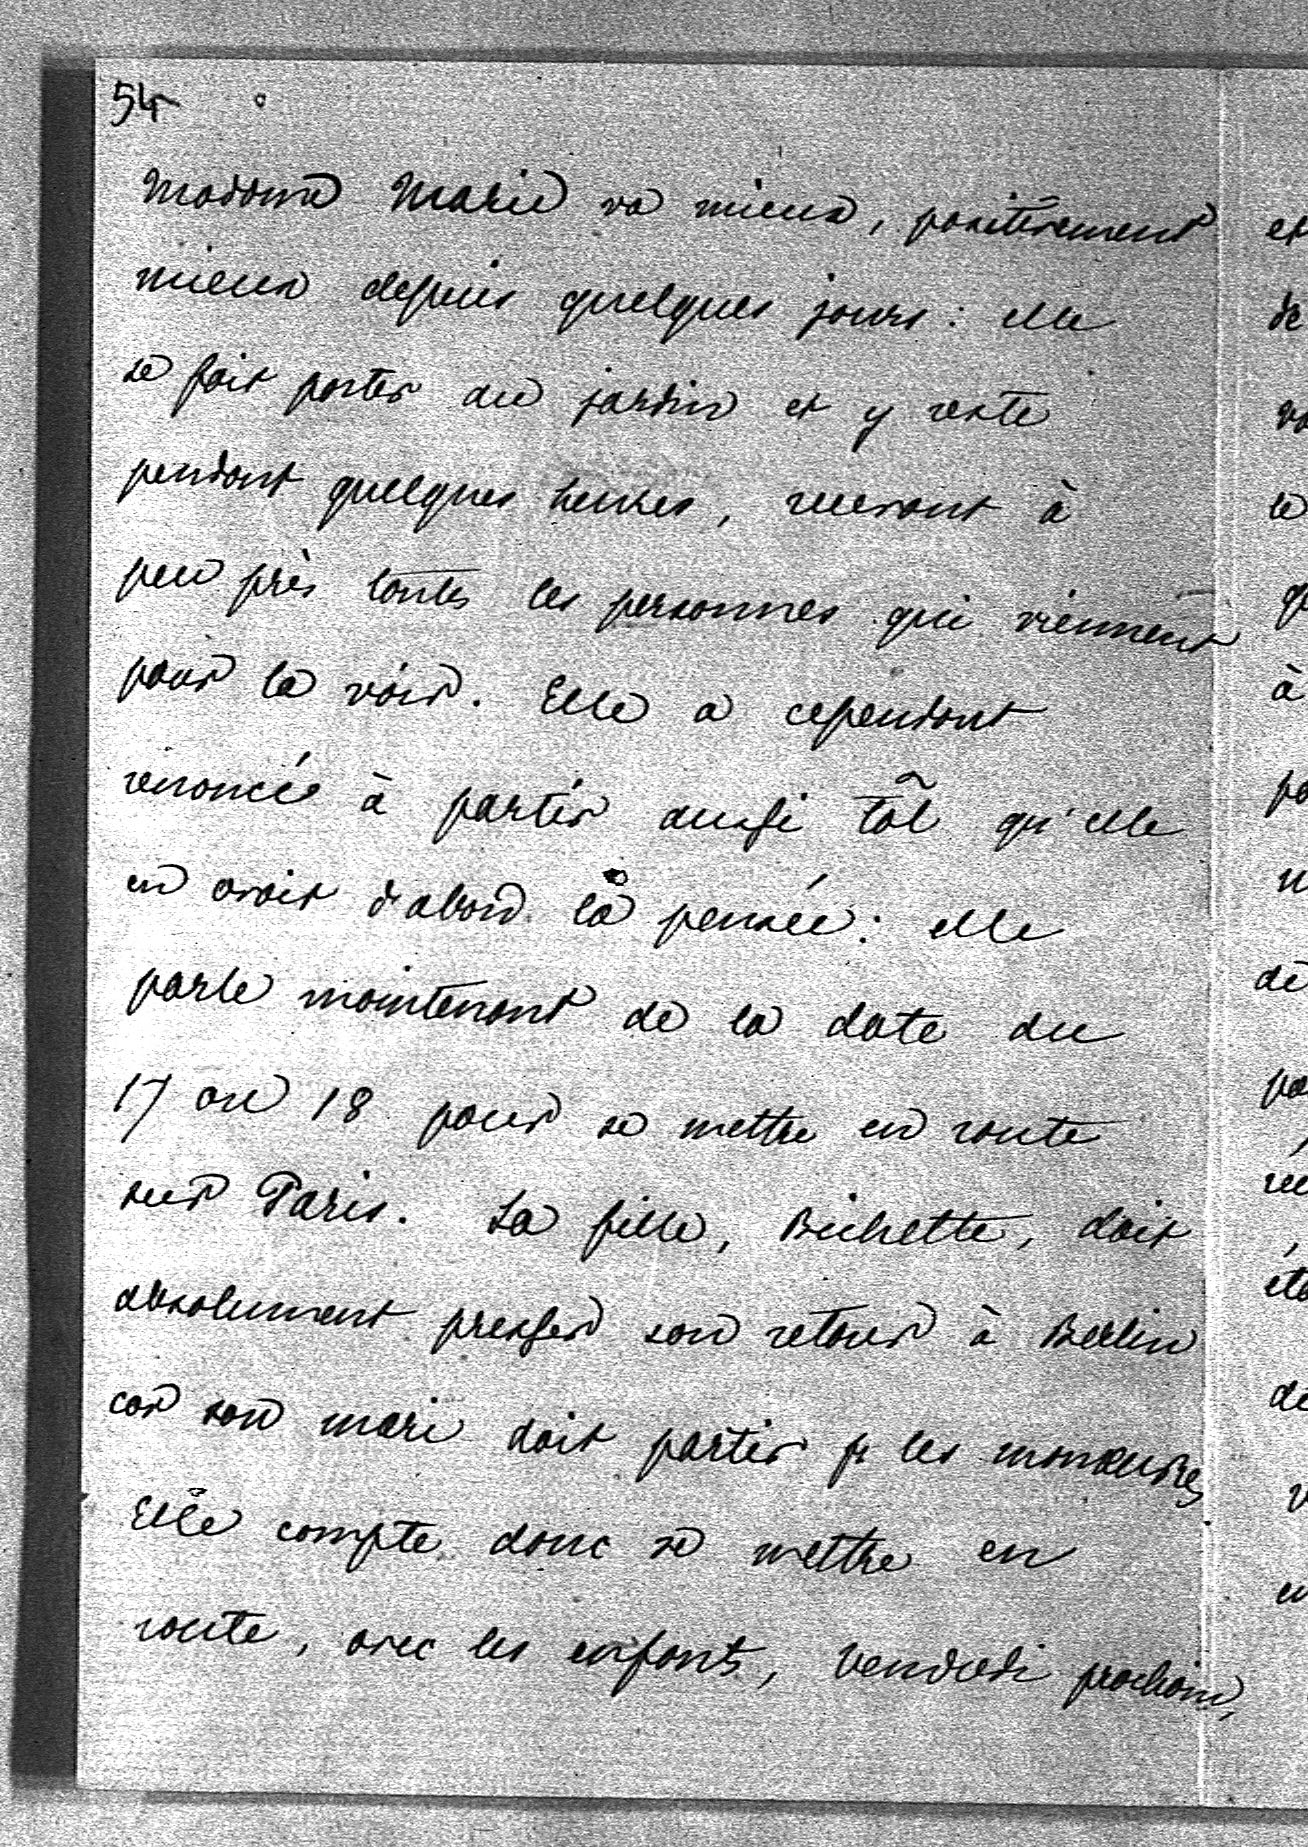 54
Madame Marie va mieux, positivement
mieux depuis quelques jours: elle
se fait porter au jardin et y reste
pendant quelques heures, recevant à
peu près toutes les personnes qui viennent
pour la voir. Elle a cependant
renoncée à partir aussi tôt qu'elle
en avait d'abord la pensée: elle
parle maintenant de la date du
17 ou 18 pour se mettre en route
sur Paris. Sa fille, Bichette, doit
absolument presser son retour à Berlin
car son mari doit partir pr les manœuvres
Elle compte donc se mettre en
route, avec les enfants, Vendredi prochain,